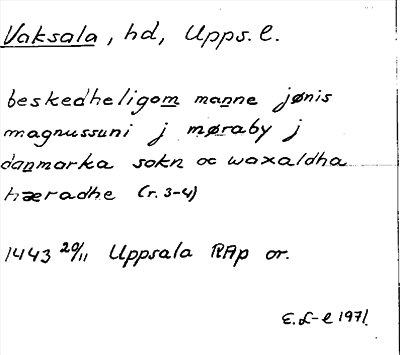 Vaksala, hd, Upps. l.
beskedheligom manne jønis
magnussuni j møraby j
danmarka sokn oc waxaldha
hæradhe (r. 3-4)
1443 20/11 Uppsala RAp or.
E. L-l 1971.